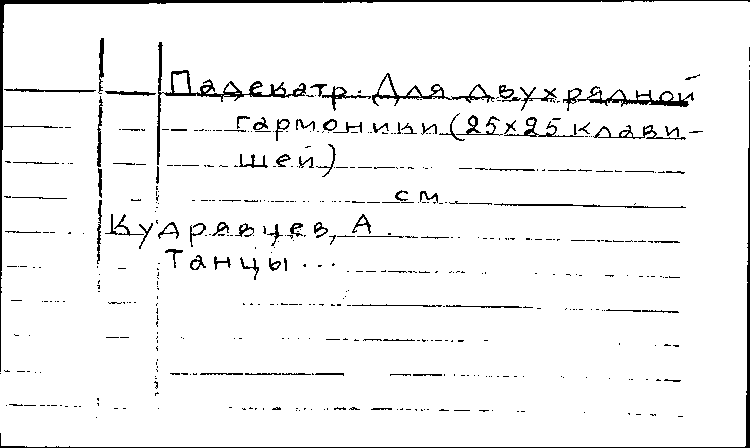 Падекатр. Для двухрядной
гармоники (25x25 клави-
шей)
см.
Кудрявцев, А.
Танцы ...